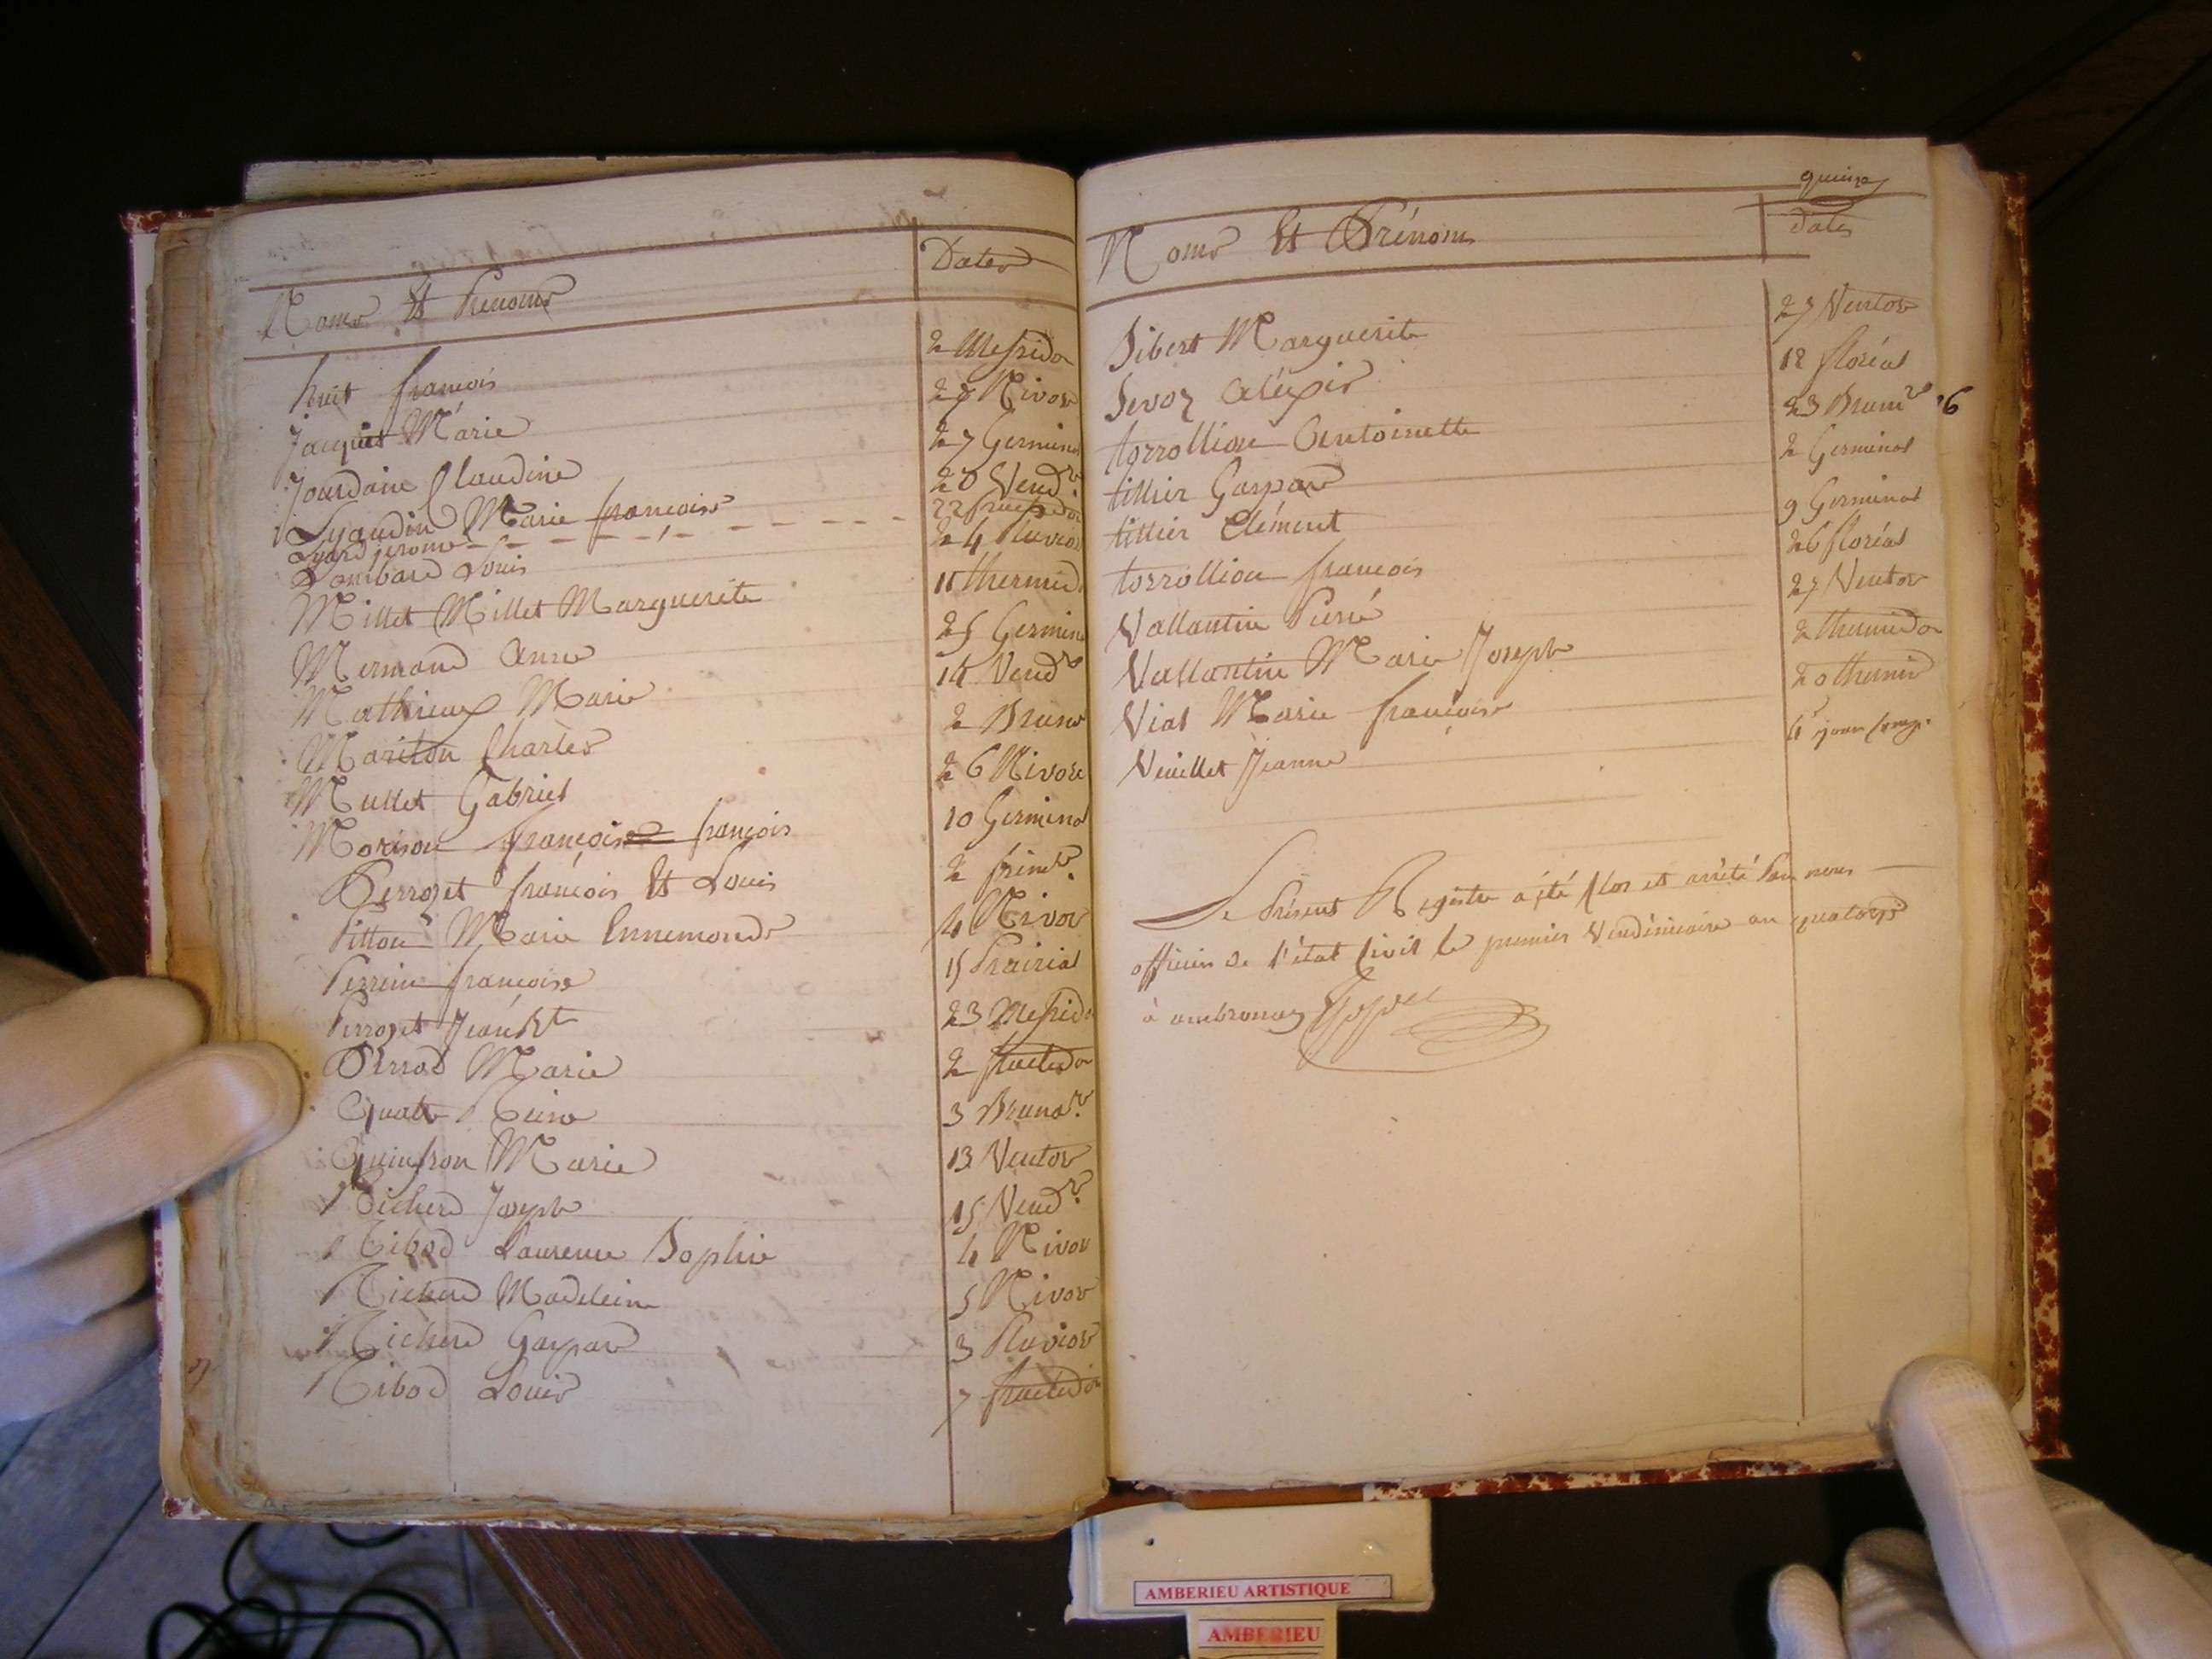 Noms Et Prenoms Dates
huit françois 2 Messidor
Jacquet Marie 27 Nivose
Jourdain Claudine 27 Germinal
Lyaudin Marie françoise 20 Vend.re
Lyard jerome 22 fructidor
Lombard Louis 24 Pluviose
Millet Millet Marguerite 11 thermid
Mermand Anne 25 Germin
Mathieux Marie 14 Vend.re
Mariton Charles 2 Brum
Mullet Gabriel 26 Nivose
Morison françoise françois 10 Germinal
Perrozet françois Et Louis 2 frim.re
Pittou Marie Ennemonde 4 Nivos
Perrin françoise 15 Prairial
Perrozet Jean Bte 23 Messido
Perrod Marie 2 fructidor
Quatre Reine 3 Bruma.re
Quinson Marie 13 Ventos
Richerd Joseph 15 Vend.re
Ribod Laurence Sophie 4 Nivos
Richerd Madeleine 5 Nivos
Richerd Gaspard 3 Pluvios
Ribod Louis 7 fructidor
quinze
Noms Et Prénoms Dates
Sibert Marguerite 27 Ventos
Sevoz Aléxis 12 floréal
torrollion Antoinette 23 Brum.re
tillier Gaspard 2 Germinal
tillier Clément 9 Germinal
torrollion françois 26 floréal
Vallantin Pierre 27 Ventos
Vallantin Marie Joseph 2 thermidor
Vial Marie françoise 20 thermid
Veuillet Jeanne 4e jour comp.
Le Présent Registre a été Clos et arrêté Par nous
officier de l'état Civil le premier Vendémiaire an quatorze
à ambronay
AMBERIEU ARTISTIQUE
AMBERIEU